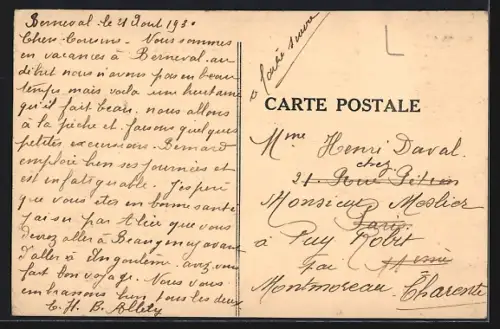 Berneval le 21 Aout 193.
Chers Cousins. Nous sommes
en vacances à Berneval. au
début nous n'avons pas eu beau
temps mais voila une huitaine
qu'il fait beau. nous allons
à la pêche et faisons quelques
petites excursions. Bernard
emploie bien ses journées et
est infatiguable. J'espère
que vous êtes en bonne santé
j'ai su par Alice que vous
devez aller à Beaugency avant
d'aller à Angoulème. avez vous
fait bon voyage. Nous vous
embrassons bien tous les deux
C. H. B.
faire suivre
CARTE POSTALE
Mme Henri Daval.
chez
21. Rue
Monsieur Meslier
Paris
à Puy Robit
par
Montmoreau Charente